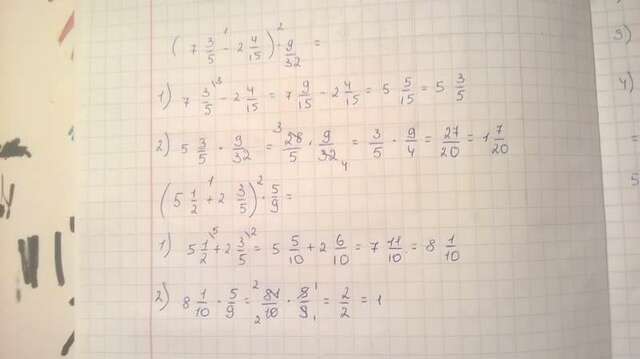 (7 3/5 -¹ 2 4/15) ·² 9/32 =
1) 7 3/5 \3 - 2 4/15 = 7 9/15 - 2 4/15 = 5 5/15 = 5 3/5
2) 5 3/5 · 9/32 = ³28/5 · 9/32₄ = 3/5 · 9/4 = 27/20 = 1 7/20
(5 1/2 +¹ 2 3/5) ·² 5/9 =
1) 5 1/2 \5 + 2 3/5 \2 = 5 5/10 + 2 6/10 = 7 11/10 = 8 1/10
2) 8 1/10 · 5/9 = ²81/₂10 · 8¹/9₁ = 2/2 = 1
3)
4)
=
5